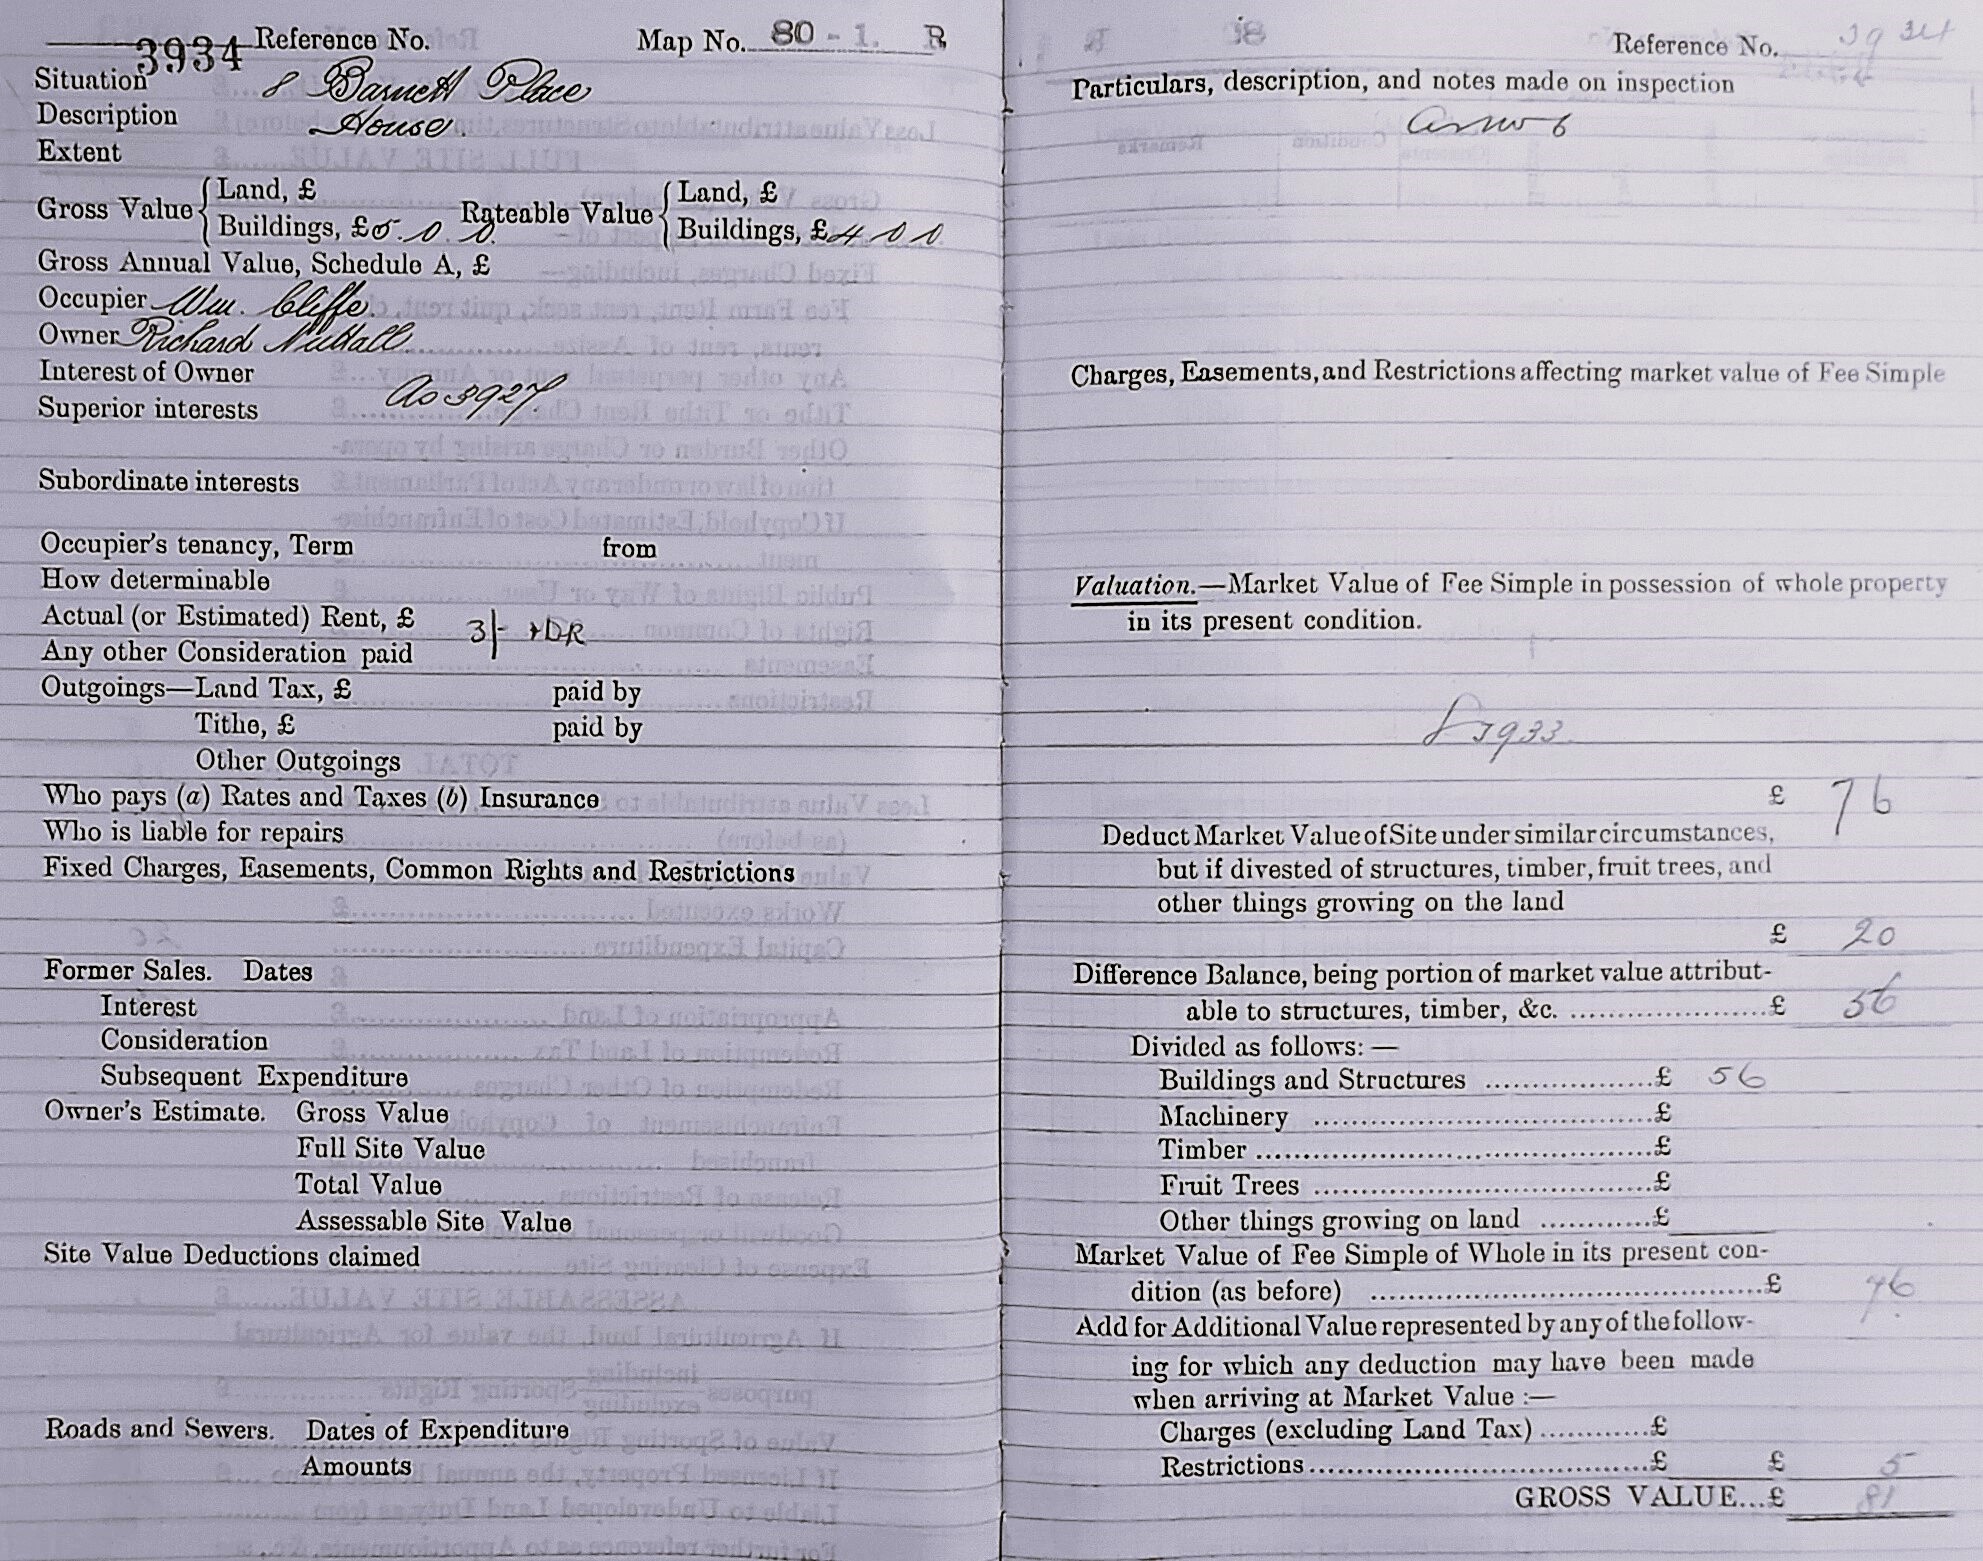 3934 Reference No. Map No. 80-1. R
Situation 8 Barnett Place
Description House
Extent
Gross Value { Land, £ Rateable Value { Land, £
Buildings, £5. 0. 0. Buildings, £4 0 0
Gross Annual Value, Schedule A, £
Occupier Wm. Cliffe.
Owner Richard Nuttall.
Interest of Owner
As 3927.
Superior interests
Subordinate interests
Occupier's tenancy, Term from
How determinable
Actual (or Estimated) Rent, £ 3/- + DR
Any other Consideration paid
Outgoings—Land Tax, £ paid by
Tithe, £ paid by
Other Outgoings
Who pays (a) Rates and Taxes (b) Insurance
Who is liable for repairs
Fixed Charges, Easements, Common Rights and Restrictions
Former Sales. Dates
Interest
Consideration
Subsequent Expenditure
Owner's Estimate. Gross Value
Full Site Value
Total Value
Assessable Site Value
Site Value Deductions claimed
Roads and Sewers. Dates of Expenditure
Amounts
Reference No. 3934
Particulars, description, and notes made on inspection
as no 6
Charges, Easements, and Restrictions affecting market value of Fee Simple
Valuation.—Market Value of Fee Simple in possession of whole property
in its present condition.
3933
£ 76
Deduct Market Value of Site under similar circumstances,
but if divested of structures, timber, fruit trees, and
other things growing on the land
£ 20
Difference Balance, being portion of market value attribut-
able to structures, timber, &c. ....................£ 56
Divided as follows:—
Buildings and Structures .................£ 56
Machinery ..................................£
Timber .......................................£
Fruit Trees .................................£
Other things growing on land ............£
Market Value of Fee Simple of Whole in its present con-
dition (as before) .......................................£ 76
Add for Additional Value represented by any of the follow-
ing for which any deduction may have been made
when arriving at Market Value :—
Charges (excluding Land Tax)............£
Restrictions..................................£ £ 5
GROSS VALUE...£ 81